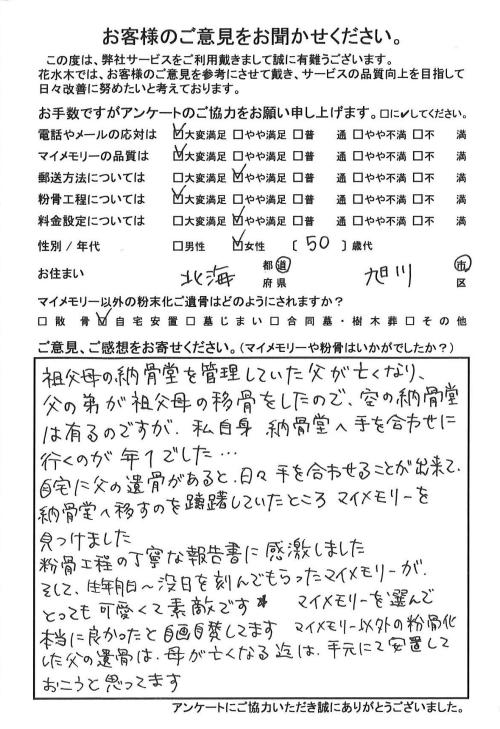 お客様のご意見をお聞かせください。
この度は、弊社サービスをご利用戴きまして誠に有難うございます。
花水木では、お客様のご意見を参考にさせて戴き、サービスの品質向上を目指して
日々改善に努めたいと考えております。
お手数ですがアンケートのご協力をお願い申し上げます。□に✔してください。
電話やメールの応対は ☑大変満足 □やや満足 □普 通 □やや不満 □不 満
マイメモリーの品質は ☑大変満足 □やや満足 □普 通 □やや不満 □不 満
郵送方法については □大変満足 ☑やや満足 □普 通 □やや不満 □不 満
粉骨工程については ☑大変満足 □やや満足 □普 通 □やや不満 □不 満
料金設定については □大変満足 ☑やや満足 □普 通 □やや不満 □不 満
性別 / 年代 □男性 ☑女性 [ 50 ] 歳代
お住まい 北海 都道府県 旭川 市区
マイメモリー以外の粉末化ご遺骨はどのようにされますか？
□散 骨 ☑自宅安置 □墓じまい □合同墓・樹木葬 □その他
ご意見、ご感想をお寄せください。(マイメモリーや粉骨はいかがでしたか？)
祖父母の納骨堂を管理していた父が亡くなり、
父の弟が祖父母の移骨をしたので、空の納骨堂
は有るのですが、私自身 納骨堂へ手を合わせに
行くのが年1でした…
自宅に父の遺骨があると、日々手を合わせることが出来て、
納骨堂へ移すのを躊躇していたところ マイメモリーを
見つけました
粉骨工程の丁寧な報告書に感激しました
そして、生年月日～没日を刻んでもらったマイメモリーが、
とっても可愛くて素敵です マイメモリーを選んで
本当に良かったと自画自賛してます マイメモリー以外の粉骨化
した父の遺骨は、母が亡くなる迄は、手元にて安置して
おこうと思ってます
アンケートにご協力いただき誠にありがとうございました。